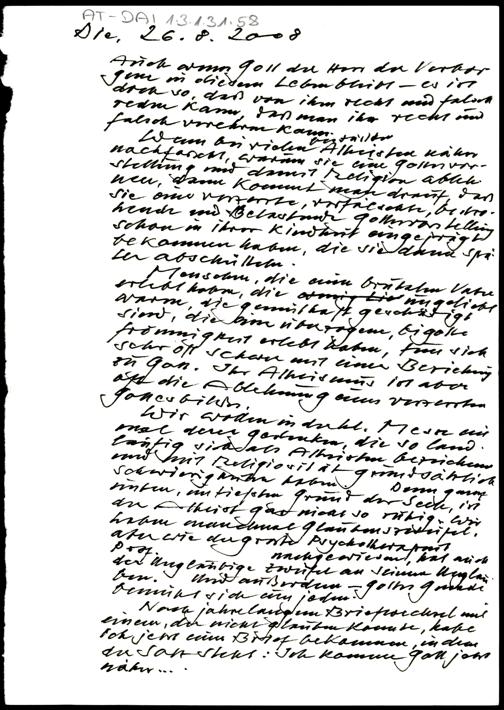 AT-DAI 13.1.31.58
Die, 26.8.2008
Auch wenn Gott der Herr der Verbor
gene in diesem Leben bleibt – es ist
doch so, daß von ihm recht und falsch
reden kann, daß man ihn recht und
falsch verehren kann.
Wenn bei vielen Atheisten näher
nachforscht, warum sie eine Gottesvor-
stellung und damit Religion ableh
nen, dann kommt man drauf, daß
sie eine verzerrte, verfälschte, bedro-
hende und Belastende Gottesvorstellung
schon in ihrer Kindheit
bekommen haben, die sie dann spä
ter abschütteln.
Menschen, die einen brutalen Vater
erlebt haben, die ungeliebt
waren, die gemüthaft geschädigt
sind, die eine überzogene, bigotte
Frömmigkeit erlebt haben, tun sich
sehr oft schwer mit einer Beziehung
zu Gott. Ihr Atheismus ist aber
oft die Ablehnung eines verzerrten
Gottesbildes.
Wir wollen in der hl. Messe ein
mal derer gedenken, die so land-
läufig sich als Atheisten bezeichnen
und mit Religiosität grundsätzlich
Schwierigkeiten haben. Denn ganz
unten, im tiefsten Grund der Seele, ist
der Atheist gar nicht so ruhig. Wir
haben manchmal Glaubenszweifel.
aber wie der große Psychotherapeut
Prof. nachgewiesen, hat auch
der Ungläubige Zweifel an seinem Unglau
ben. Und außerdem – Gottes Gnade
bemüht sich um jeden.
Nach jahrelangem Briefwechsel mit
einem, der nicht glauben konnte, habe
ich jetzt einen Brief bekommen, in dem
der Satz steht: Ich komme Gott jetzt
näher...